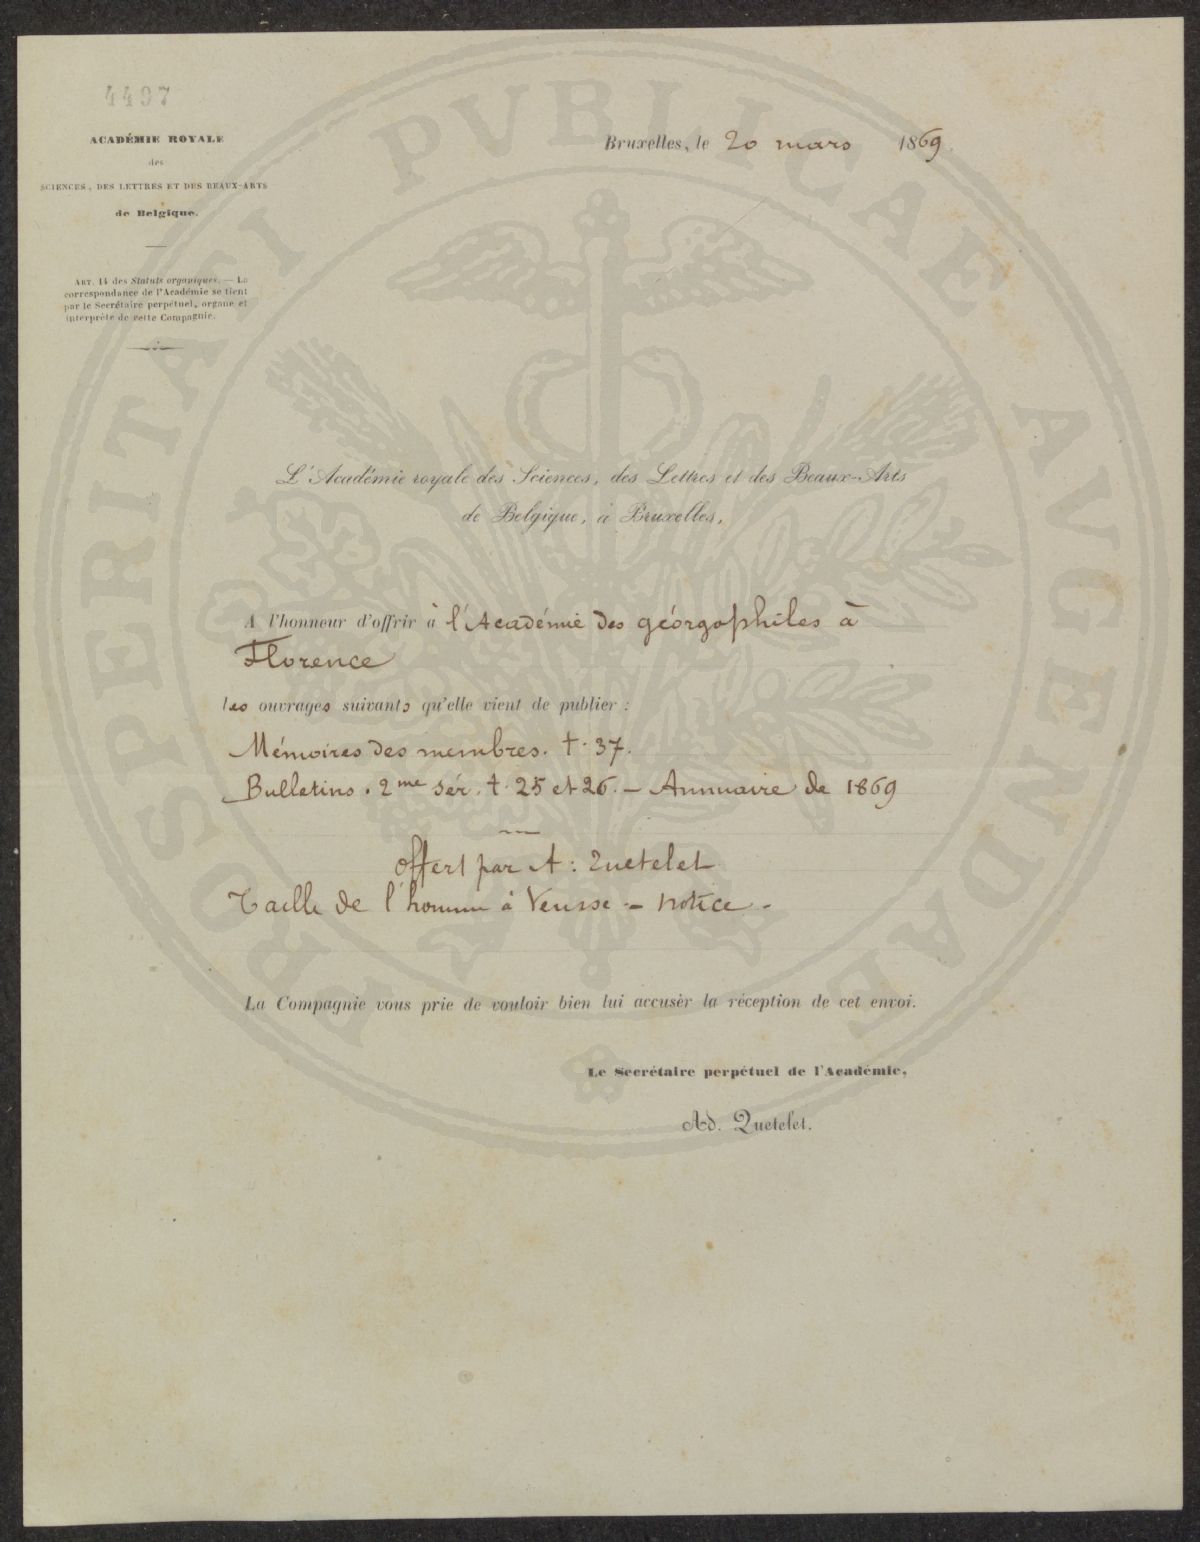 4497
ACADÉMIE ROYALE
des
SCIENCES, DES LETTRES ET DES BEAUX-ARTS
de Belgique.
Bruxelles, le 20 mars 1869.
ART. 14 des Statuts organiques. — La
correspondance de l'Académie se tient
par le Secrétaire perpétuel, organe et
interprète de cette Compagnie.
L'Académie royale des Sciences, des Lettres et des Beaux-Arts
de Belgique, à Bruxelles,
A l'honneur d'offrir à l'Académie des géorgophiles à
Florence
les ouvrages suivants qu'elle vient de publier :
Mémoires des membres. t. 37.
Bulletins. 2me sér. t. 25 et 26. — Annuaire de 1869
offert par A: Quetelet
Taille de l'homme à Venise — notice.
La Compagnie vous prie de vouloir bien lui accuser la réception de cet envoi.
Le Secrétaire perpétuel de l'Académie,
Ad. Quetelet.
PROSPERITATI PVBLICAE AVGENDAE